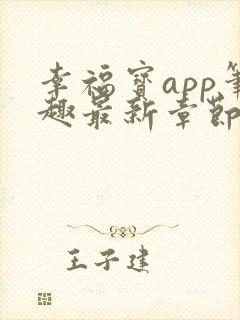 幸福宝app笔
趣最新章节
王子建